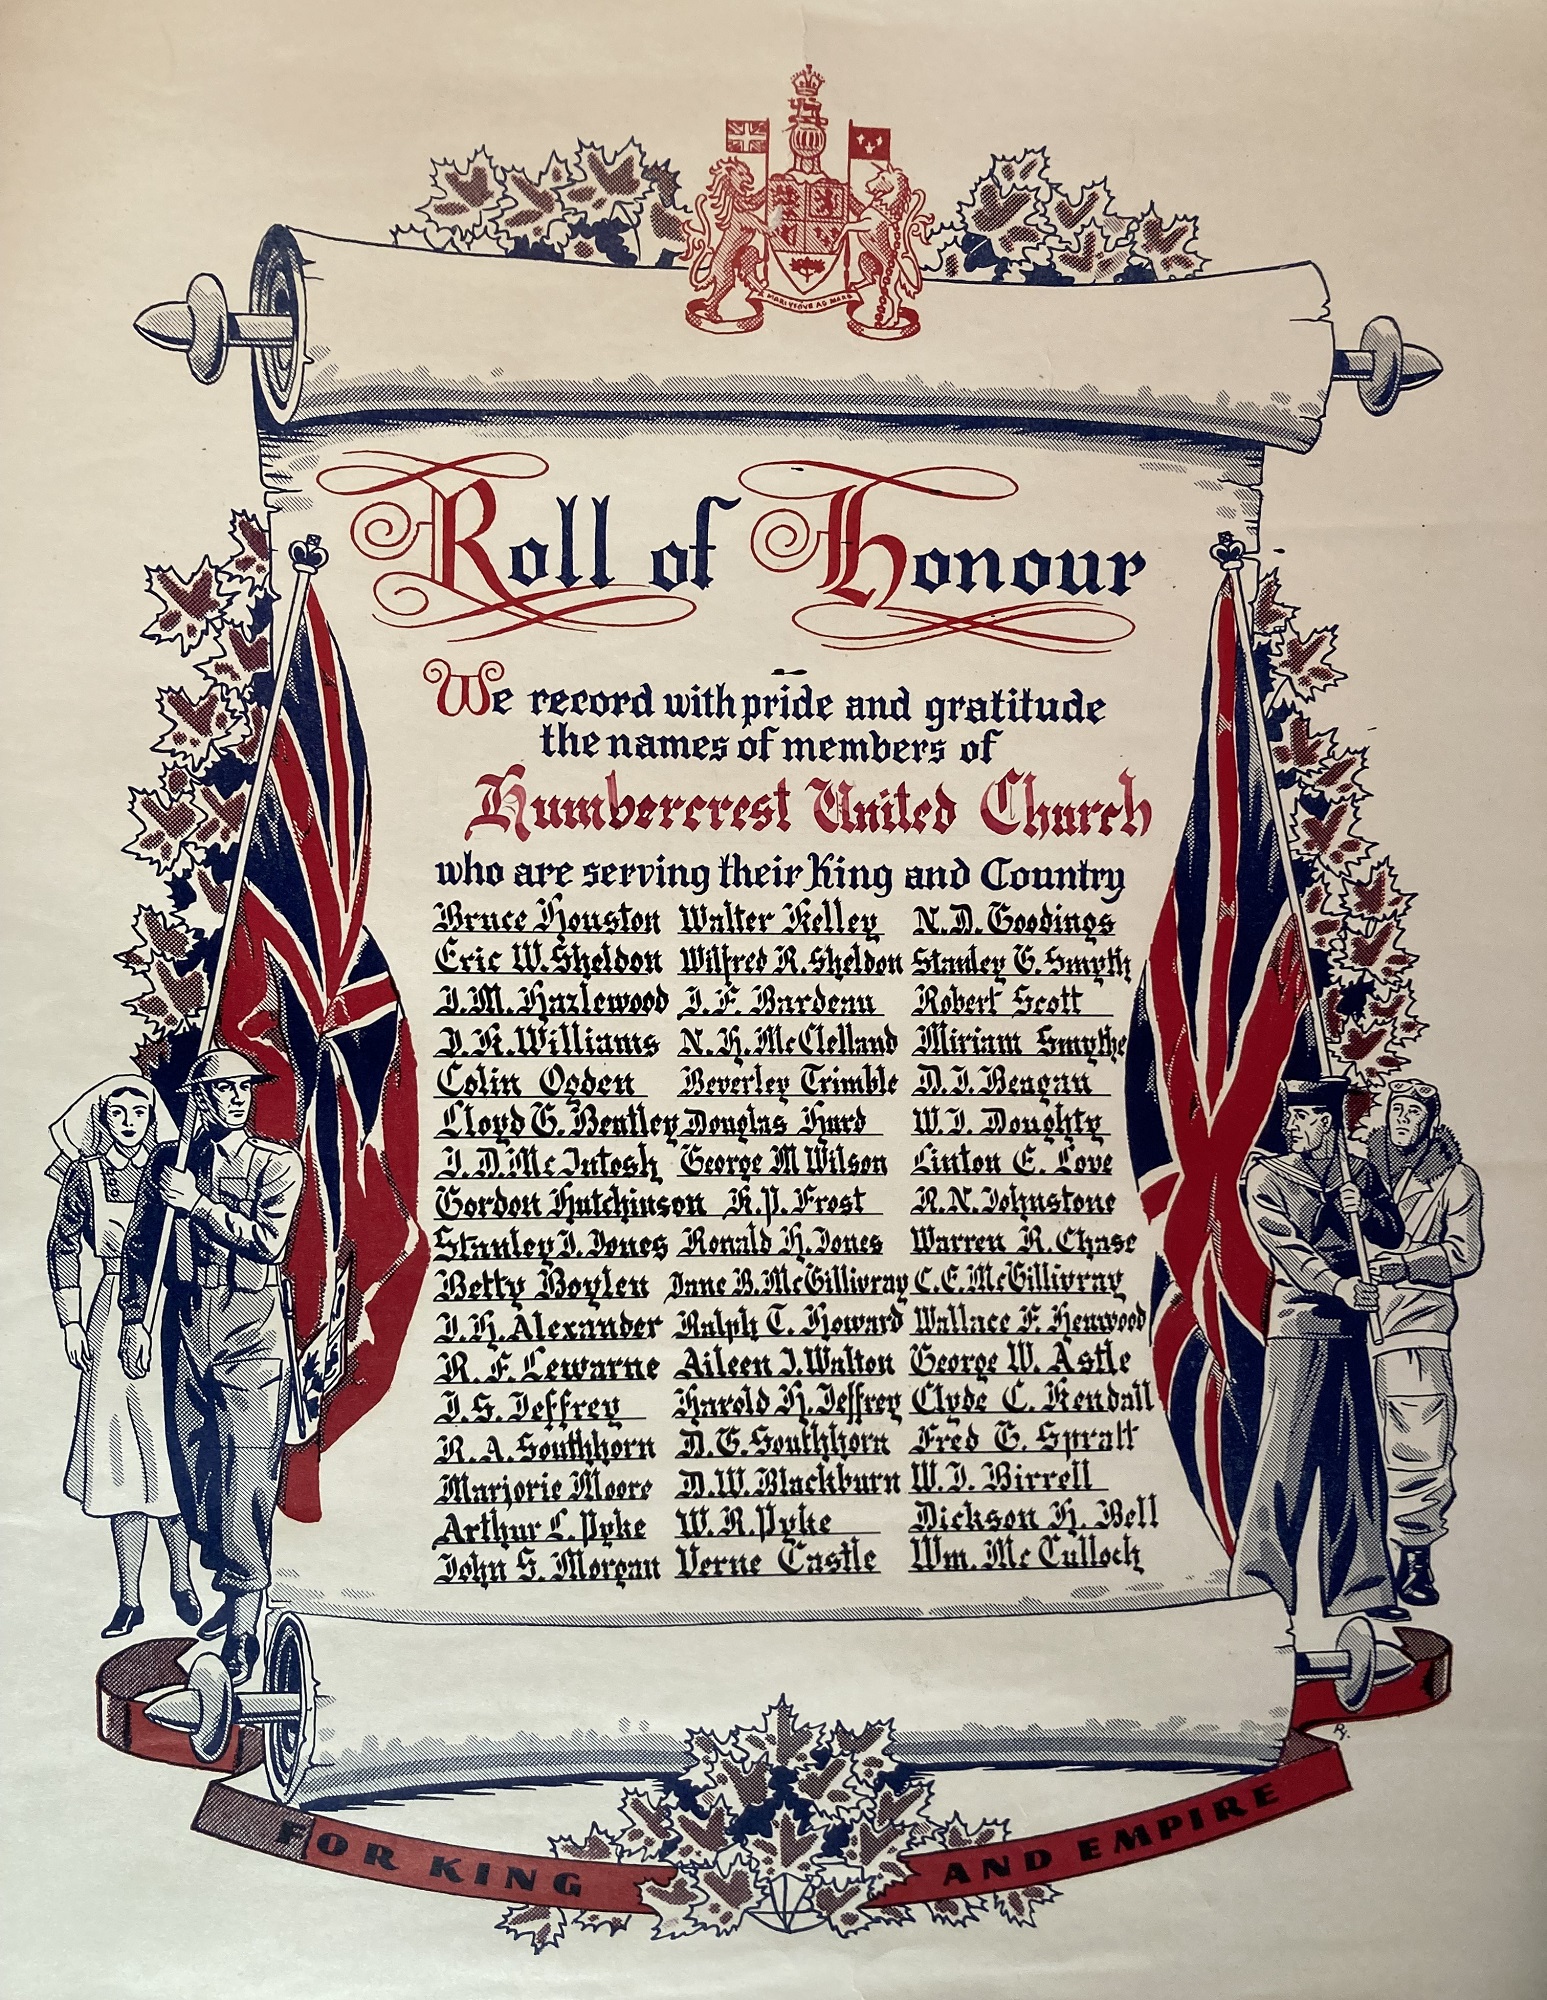 A MARI VSQVE AD MARE
Roll of Honour
We record with pride and gratitude
the names of members of
Humbercrest United Church
who are serving their King and Country
Bruce Houston Walter Kelley N. D. Goodings
Eric W. Sheldon Wilfred R. Sheldon Stanley G. Smyth
J. M. Hazlewood J. F. Bardeau Robert Scott
J. R. Williams N. H. McClelland Miriam Smythe
Colin Ogden Beverley Trimble D. J. Beagan
Lloyd G. Bentley Douglas Hurd W. J. Doughty
J. D. McIntosh George M Wilson Linton E. Love
Gordon Hutchinson R. P. Frost R. N. Johnstone
Stanley J. Jones Ronald H. Jones Warren R. Chase
Betty Boylen Jane B. McGillivray C. E. McGillivray
J. H. Alexander Ralph T. Howard Wallace F. Henwood
R. F. Lewarne Aileen J. Walton George W. Astle
J. S. Jeffrey Harold H. Jeffrey Clyde C. Kendall
R. A. Southhorn D. G. Southhorn Fred G. Spratt
Marjorie Moore D. W. Blackburn W. J. Birrell
Arthur L. Pyke W. R. Pyke Dickson H. Bell
John S. Morgan Verne Castle Wm. McCulloch
FOR KING AND EMPIRE